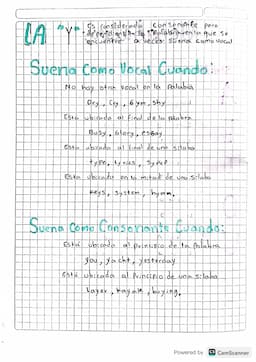 LA "Y"
Es considerado consonante pero
dependiendo de la palabra en la que se
encuentre a veces suena como vocal
Suena Como Vocal Cuando:
No hay otra vocal en la Palabra
Dry, Cry, Gym, Shy
Esta ubicada al final de la palabra
Busy, Glory, essay
Esta ubicada al final de una silaba
type, lyrics, syrup
Esta ubicada en la mitad de una silaba
Keys, System, hymn,
Suena Como Consonante Cuando:
Está ubicado al principio de la Palabra
you, yacht, yesterday
Está ubicada al Principio de una silaba
Layer, Kayak, buying.
Powered by CS CamScanner